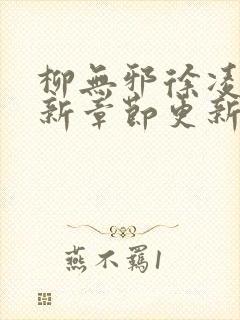 柳無邪徐凌
新章節更新
燕不羈1